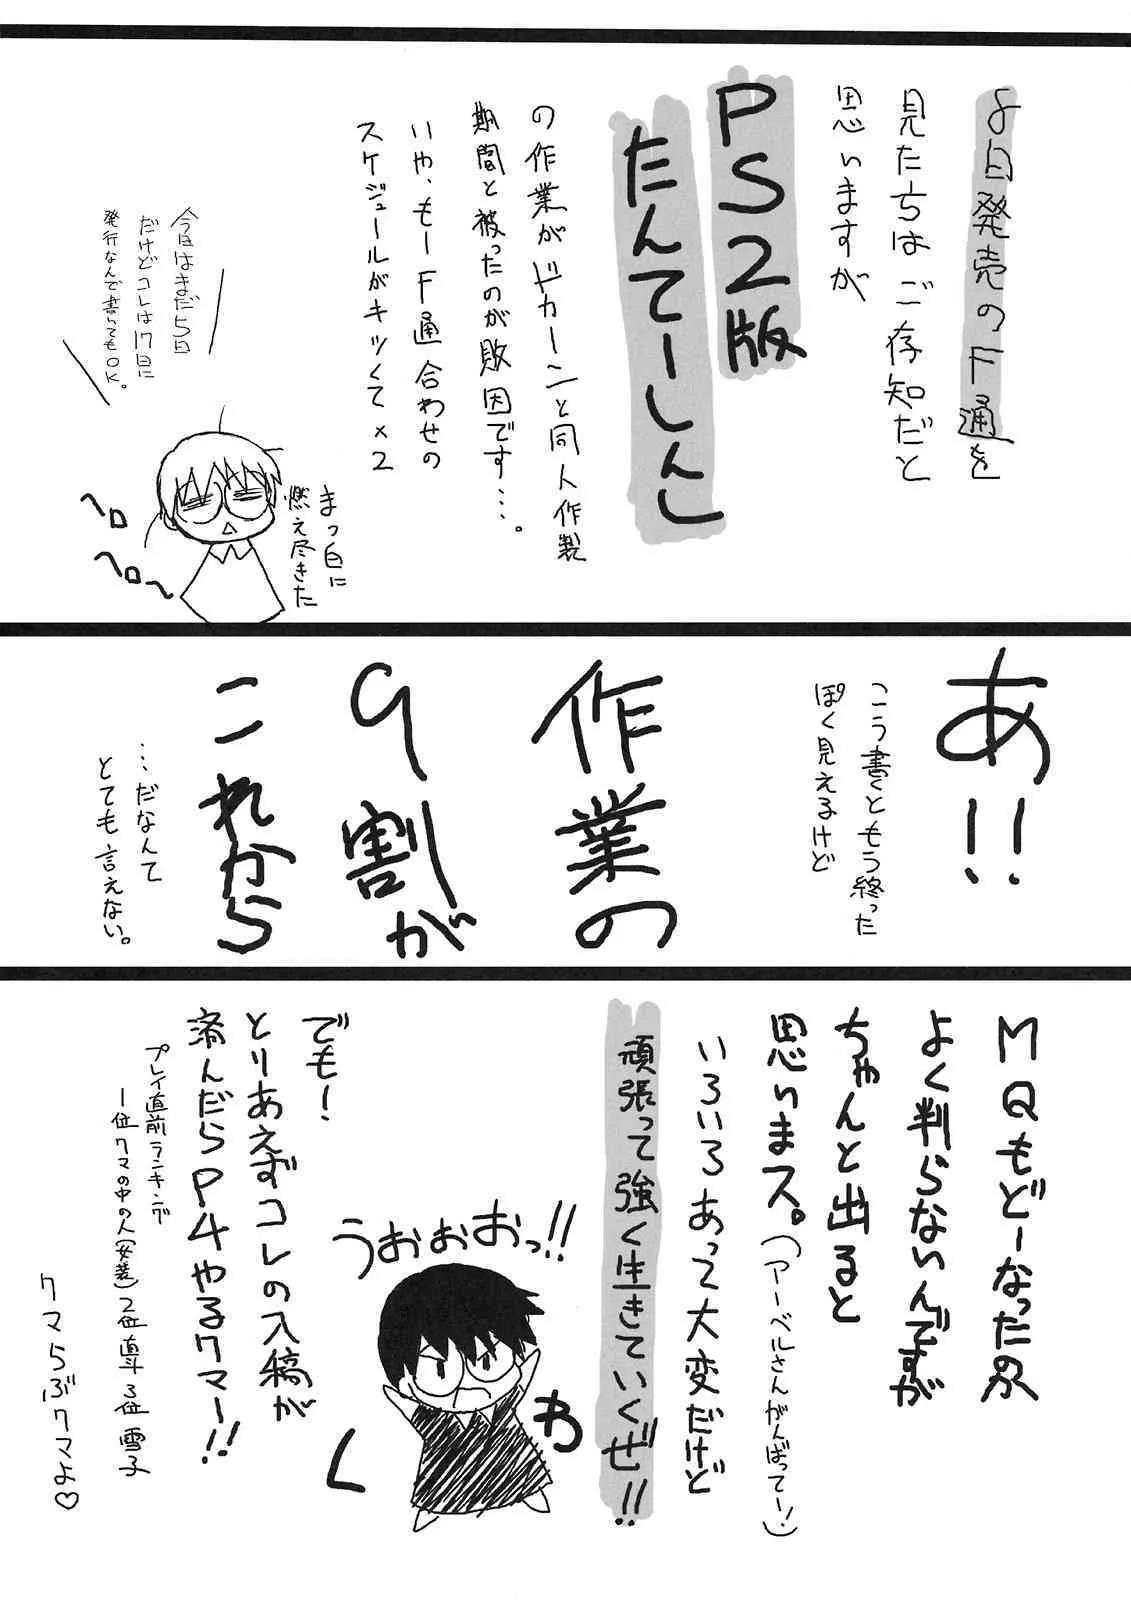 8日発売のF通を
見たちはご存知だと
思いますが
PS2版
たんてーしんし
の作業がドカーンと同人作製
期間と被ったのが敗因です…。
いや、もーF通合わせの
スケジュールがキツくて×2
今日はまだ5日
だけどコレは17日に
発行なんで書いてもOK。
まっ白に
燃え尽きた
ヘロ
ヘロ〜
あ!!
こう書くともう終った
ぽく見えるけど
作業の
9割が
これから
…だなんて
とても言えない。
MQもどーなったのか
よく判らないんですが
ちゃんと出ると
思いまス。(アーベルさんがんばってー!)
いろいろあって大変だけど
頑張って強く生きていくぜ!!
うおぉぉおっ!!
わ
く
でも!
とりあえずコレの入稿が
済んだらP4やるクマー!!
プレイ直前ランキング
1位クマの中の人(女装)2位直斗3位雪子
クマらぶクマよ♡